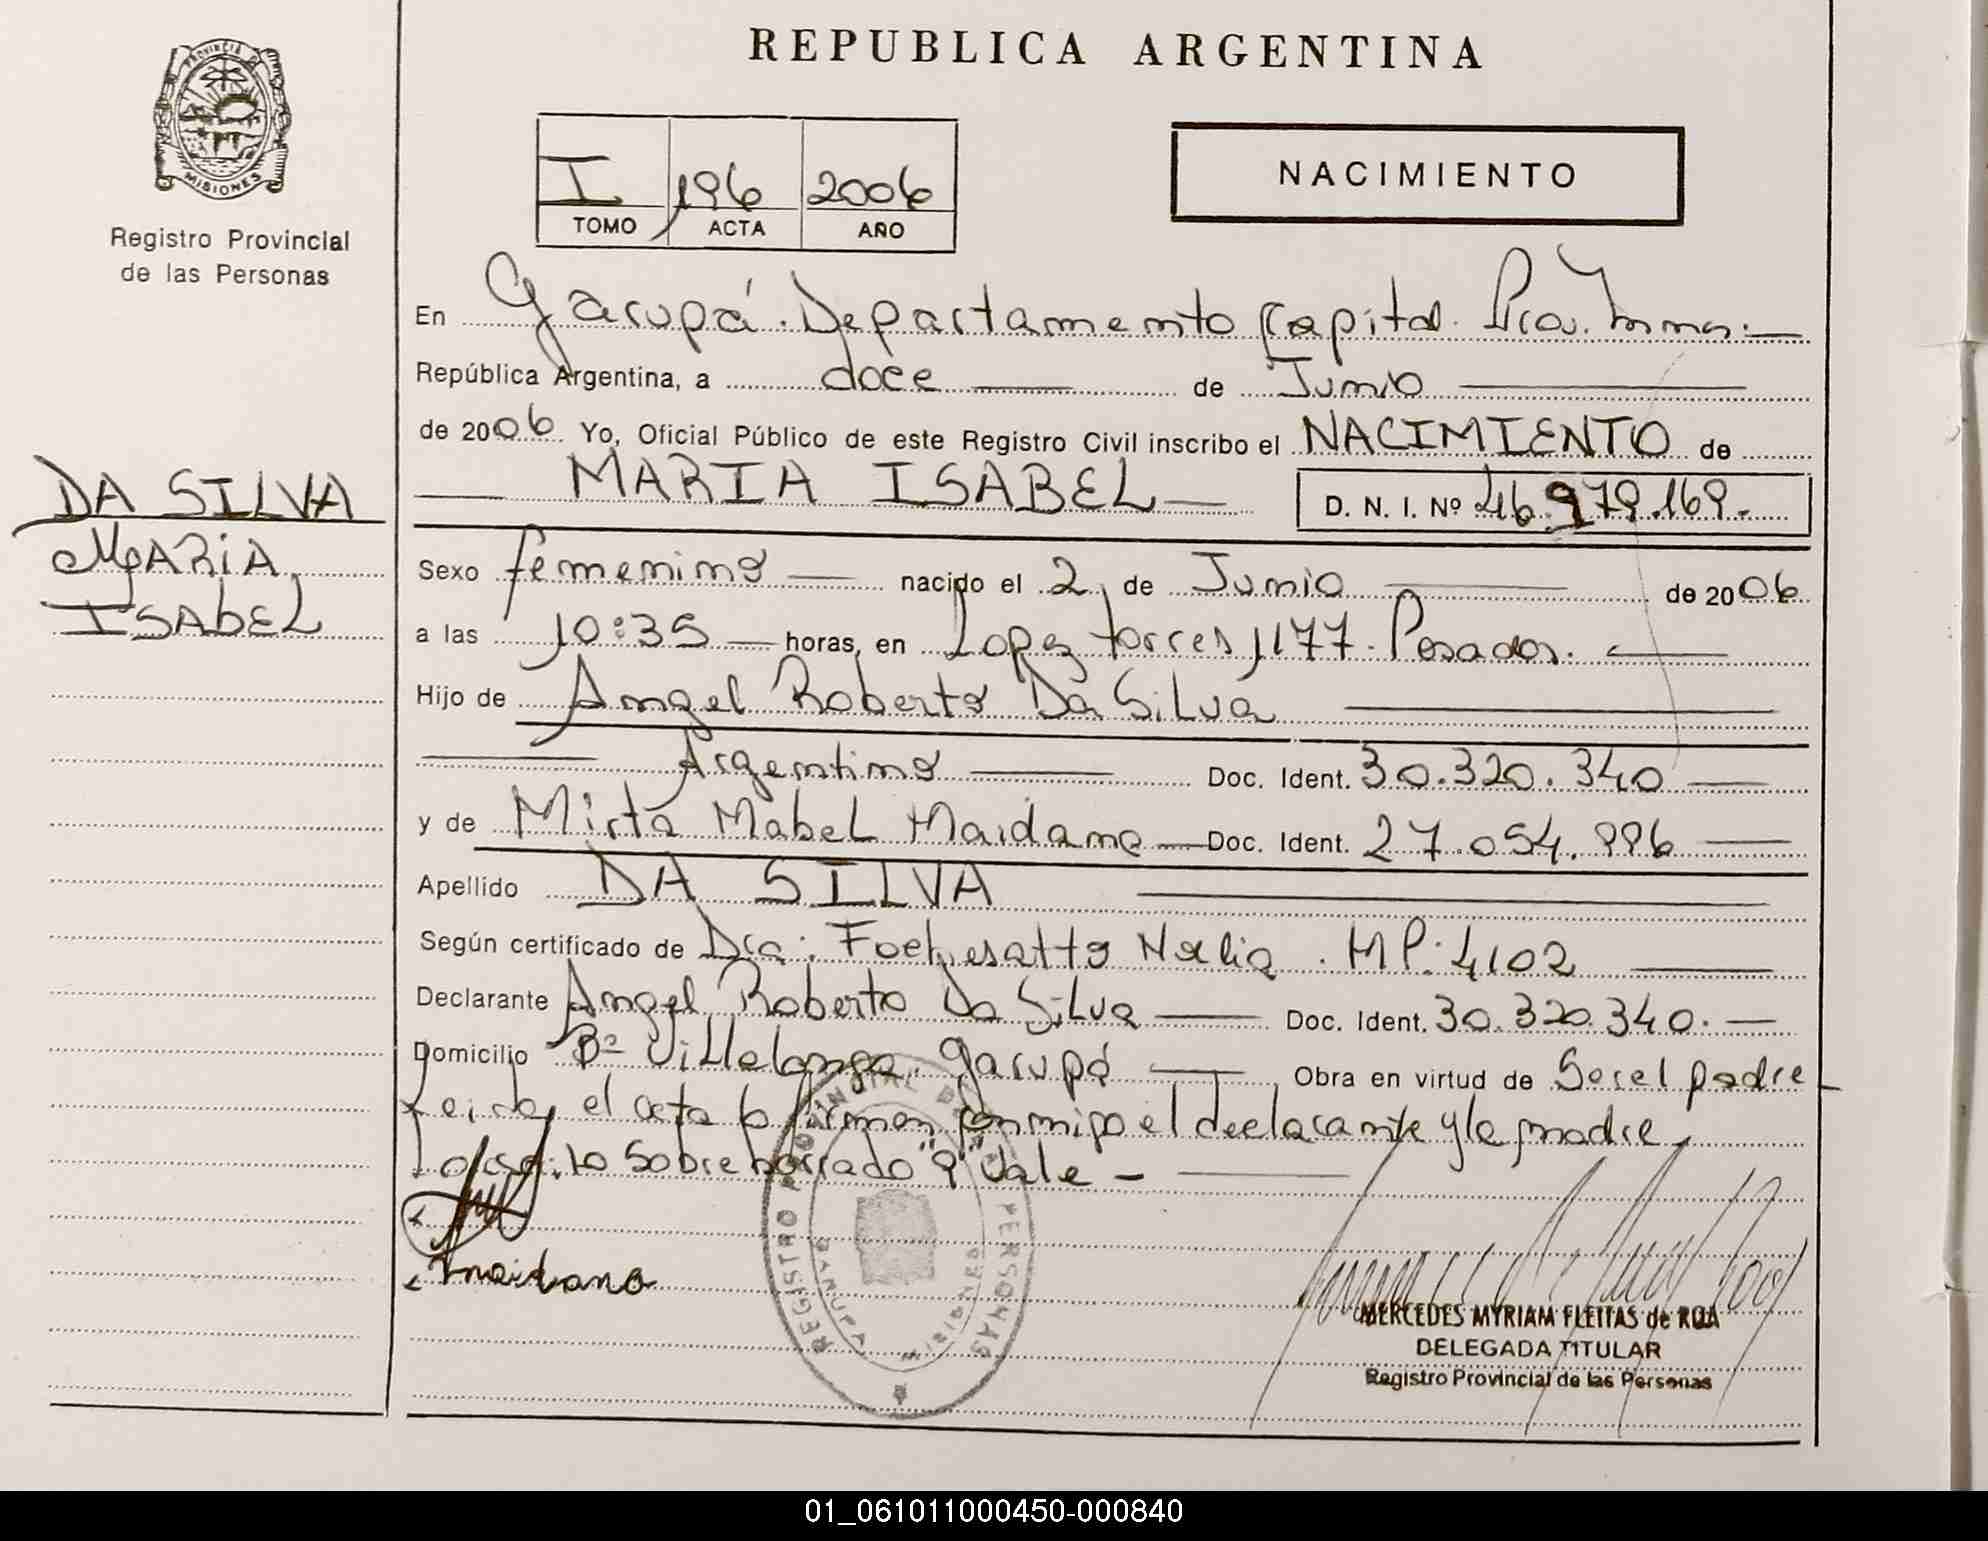 REPUBLICA ARGENTINA
PROVINCIA DE MISIONES
Registro Provincial
de las Personas
I 196 2006
TOMO ACTA AÑO
NACIMIENTO
En Garupá. Departamento Capital. Prov. Mnes.
República Argentina, a doce de Junio
de 2006 Yo, Oficial Público de este Registro Civil inscribo el NACIMIENTO de
MARIA ISABEL D. N. I. Nº 46.979.169.
DA SILVA
MARIA
ISAbEL
Sexo femenino nacido el 2 de Junio de 2006
a las 10:35 horas, en Lopez torres 1177. Posadas.
Hijo de Angel Roberto Da Silva
Argentino Doc. Ident. 30.320.340
y de Mirta Mabel Maidana Doc. Ident. 27.054.996
Apellido DA SILVA
Según certificado de Dra: Fochesatto Nalia. MP: 4102
Declarante Angel Roberto Da Silva Doc. Ident. 30.320.340.
Domicilio Bº Villalonga. Garupá Obra en virtud de Ser el padre
Leida el acta la firman conmigo el declarante y la madre,
lo escrito Sobre borrado "9" Vale -
Maidana
REGISTRO PROVINCIAL DE LAS PERSONAS
GARUPA MISIONES
MERCEDES MYRIAM FLEITAS de ROA
DELEGADA TITULAR
Registro Provincial de las Personas
01_061011000450-000840